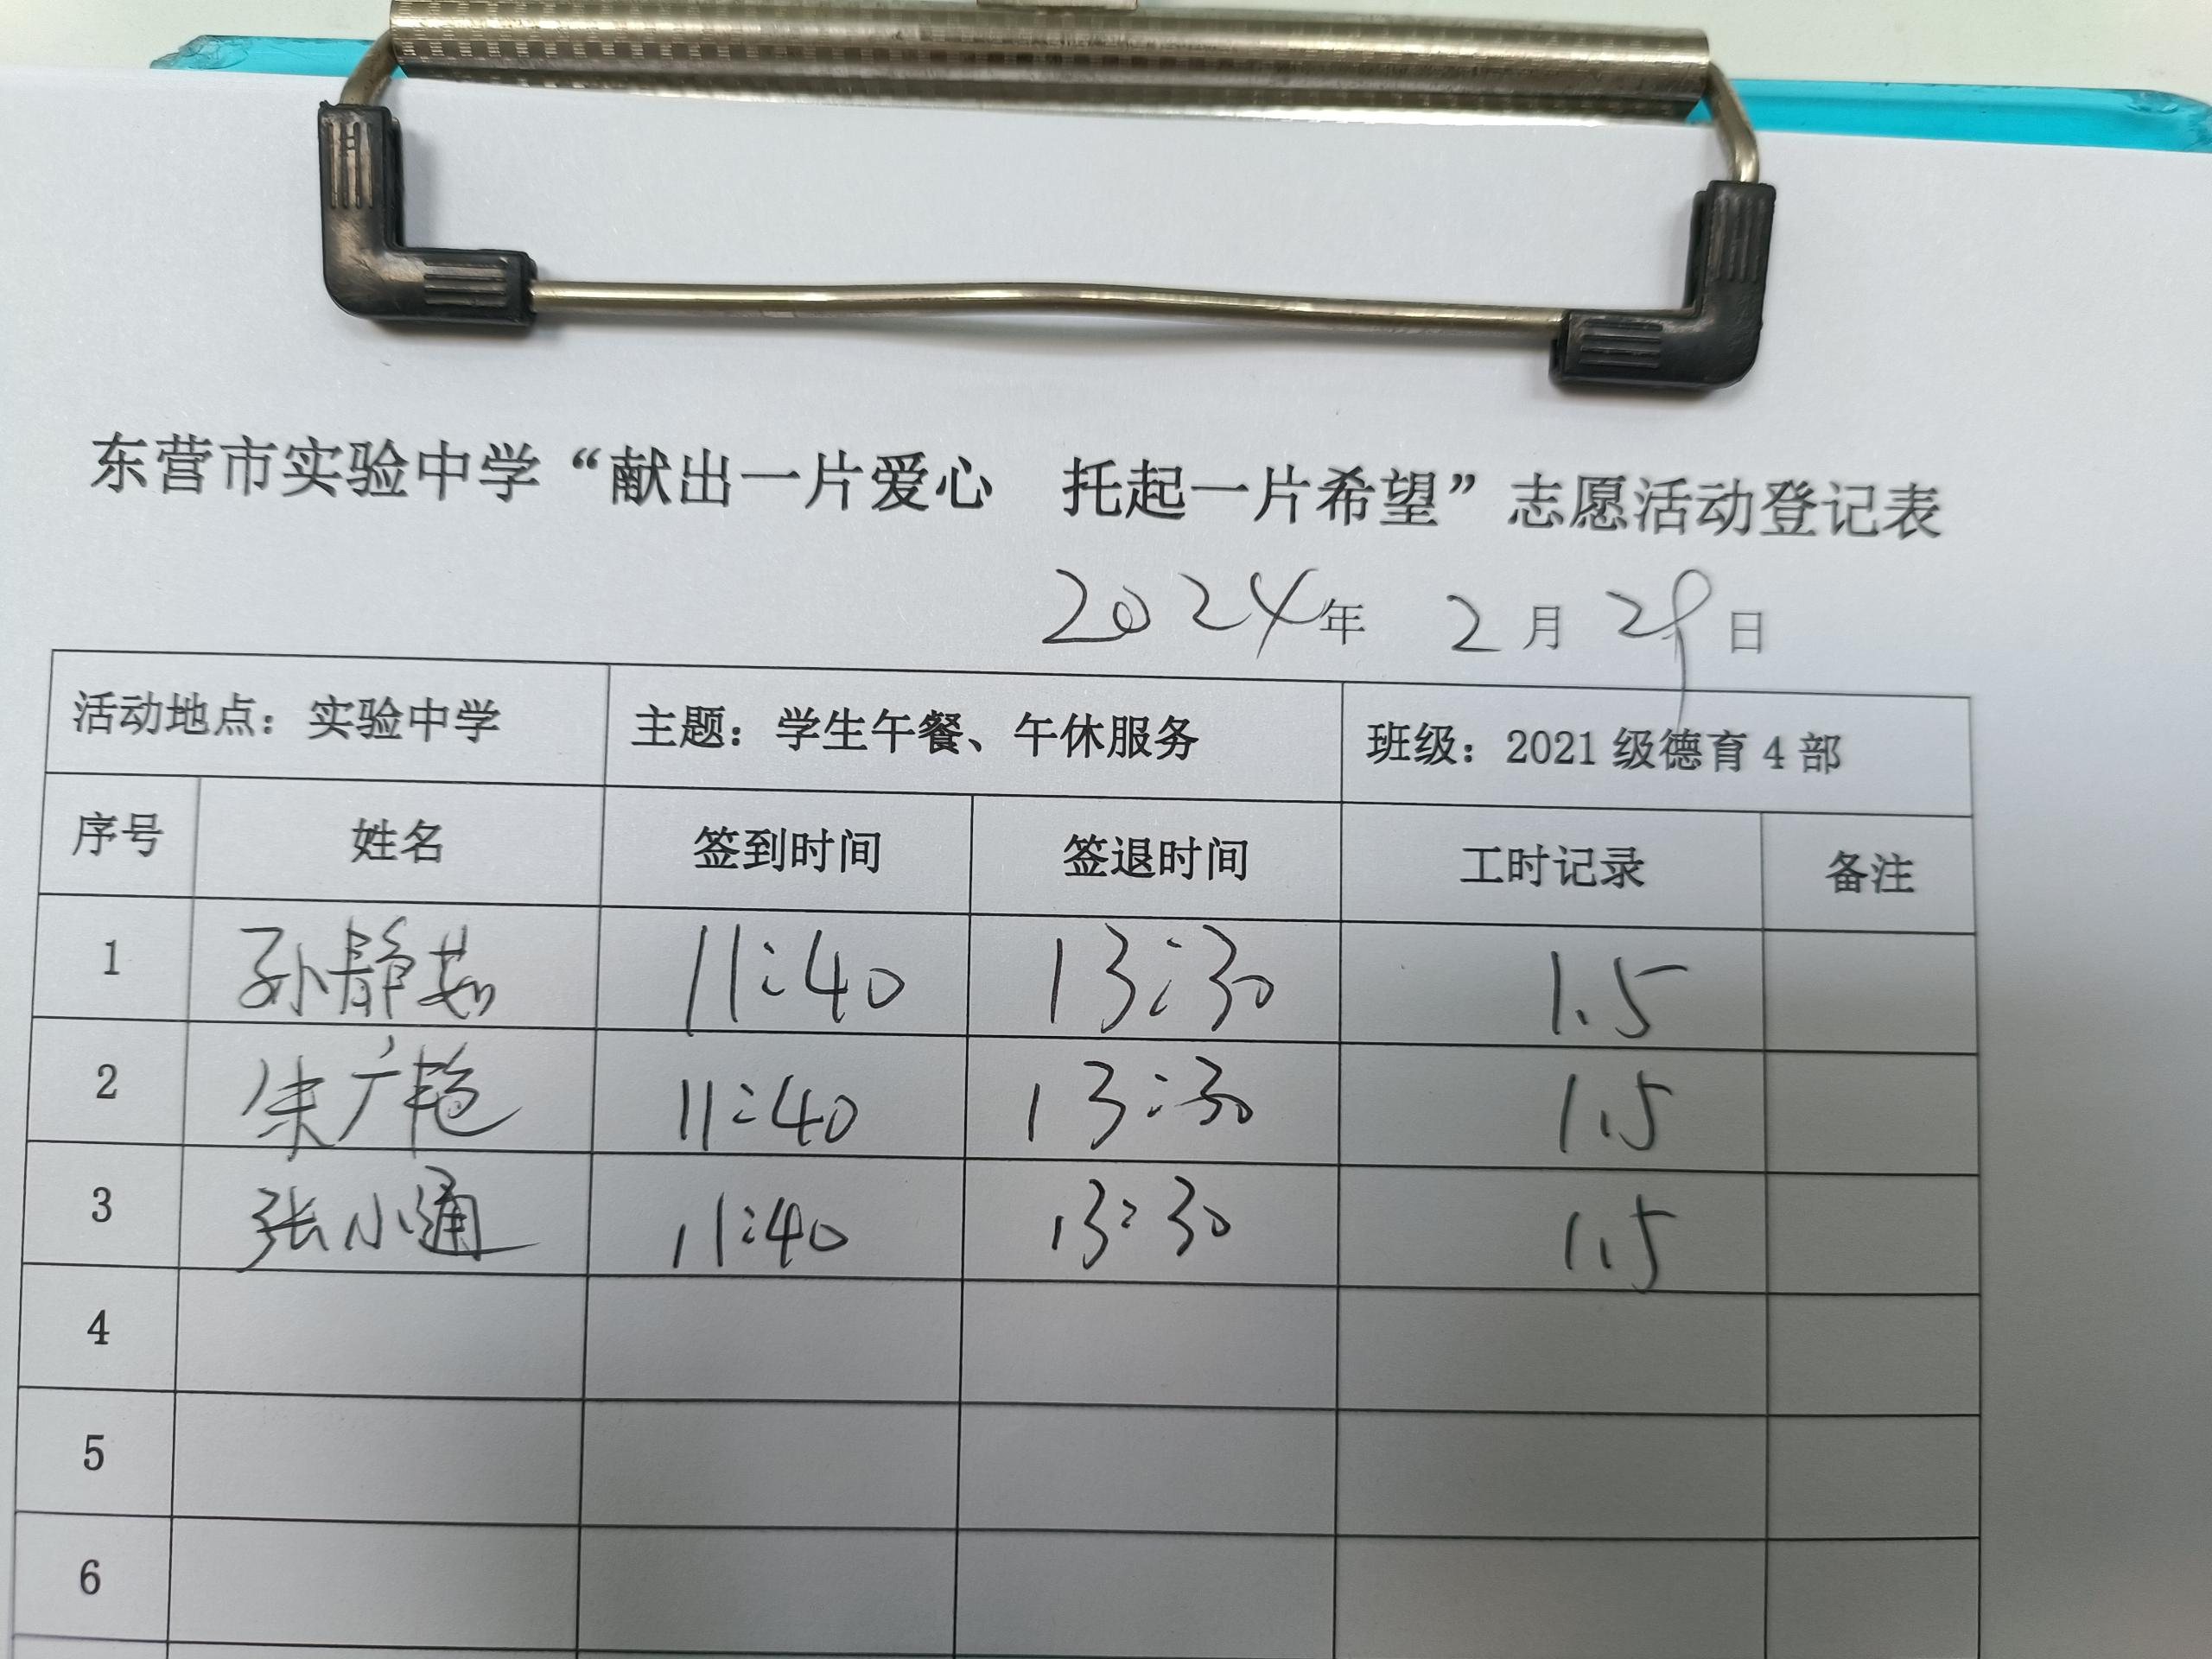 东营市实验中学“献出一片爱心 托起一片希望”志愿活动登记表
2024年 2月29日
活动地点：实验中学 主题：学生午餐、午休服务 班级：2021级德育4部
序号 姓名 签到时间 签退时间 工时记录 备注
1 孙静茹 11:40 13:30 1.5
2 朱广艳 11:40 13:30 1.5
3 张小通 11:40 13:30 1.5
4
5
6